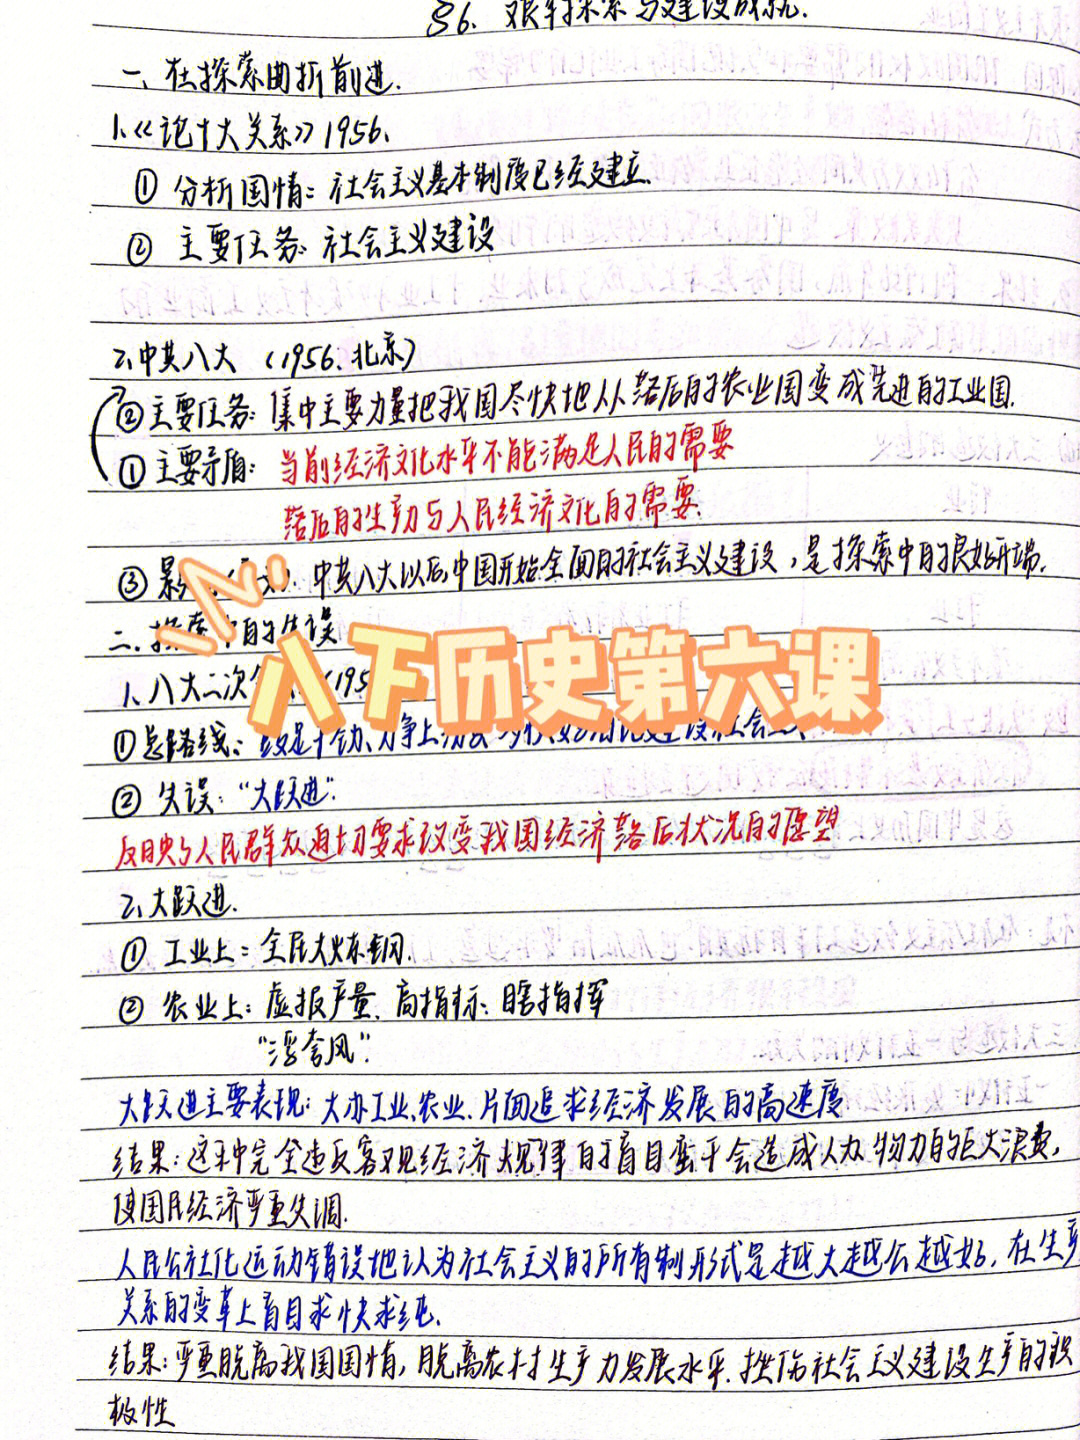 §6. 艰辛探索与建设成就.
一、在探索曲折前进.
1.《论十大关系》1956.
① 分析国情: 社会主义基本制度已经建立
② 主要任务: 社会主义建设
2.中共八大 (1956.北京)
② 主要任务: 集中主要力量把我国尽快地从落后的农业国变成先进的工业国.
① 主要矛盾: 当前经济文化水平不能满足人民的需要
落后的生产力与人民经济文化的需要.
③ 中共八大以后,中国开始全面的社会主义建设,是探索中的良好开端.
二.探索中的失误
八下历史第六课
1.八大二次 (195
① 总路线: 鼓足干劲、力争上游 建设社会主
② 失误: “大跃进”.
反映了人民群众迫切要求改变我国经济落后状况的愿望
2.大跃进.
① 工业上: 全民大炼钢.
② 农业上: 虚报产量、高指标、瞎指挥
“浮夸风”.
大跃进主要表现: 大办工业、农业.片面追求经济发展的高速度
结果:这种完全违反客观经济规律的盲目蛮干会造成人力、物力的巨大浪费,
使国民经济严重失调.
人民公社化运动错误地认为社会主义的所有制形式是越大越公越好,在生产
关系的变革上盲目求快求纯.
结果:严重脱离我国国情,脱离农村生产力发展水平.挫伤社会主义建设生产的积
极性